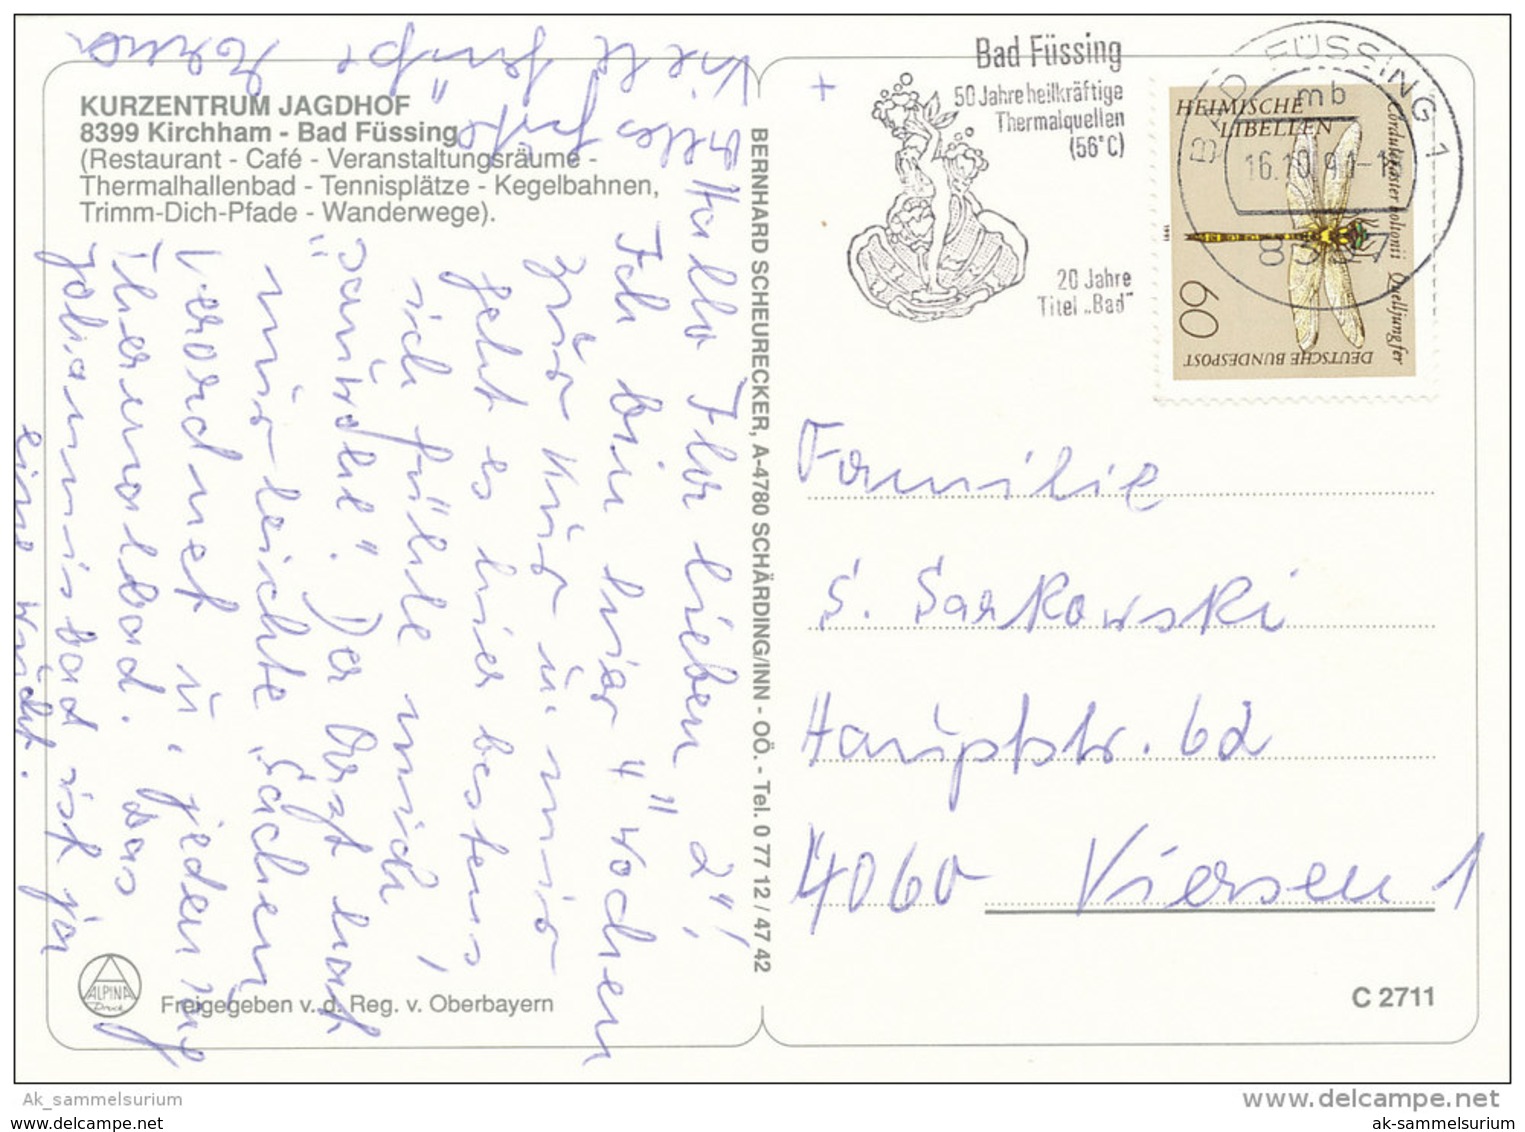 KURZENTRUM JAGDHOF
8399 Kirchham - Bad Füssing
(Restaurant - Café - Veranstaltungsräume -
Thermalhallenbad - Tennisplätze - Kegelbahnen,
Trimm-Dich-Pfade - Wanderwege).
Hallo Ihr lieben "2"!
Ich bin hier "4" Wochen
zur Kur u. mir
geht es hier bestens
ich fühle mich,
sauwohl". Der Arzt hat
mir leichte Sachen
verordnet u. jeden
Thermalbad. Das
Johannisbad ist ja
eine Wucht.
Viele Grüße
alles Gute
BERNHARD SCHEURECKER, A-4780 SCHÄRDING/INN - OÖ. - Tel. 0 77 12 / 47 42
Bad Füssing
50 Jahre heilkräftige
Thermalquellen
(56°C)
20 Jahre
Titel „Bad"
BAD FÜSSING 1
mb
16.10.91
HEIMISCHE
LIBELLEN
Cordulegaster boltonii Quelljungfer
1991
60
DEUTSCHE BUNDESPOST
Familie
S. Sarkowski
Hauptstr. 62
4060 Viersen 1
ALPINA
Druck
Freigegeben v. d. Reg. v. Oberbayern
C 2711
Ak_sammelsurium
www.delcampe.net
www.ak-sammelsurium.de
ak-sammelsurium